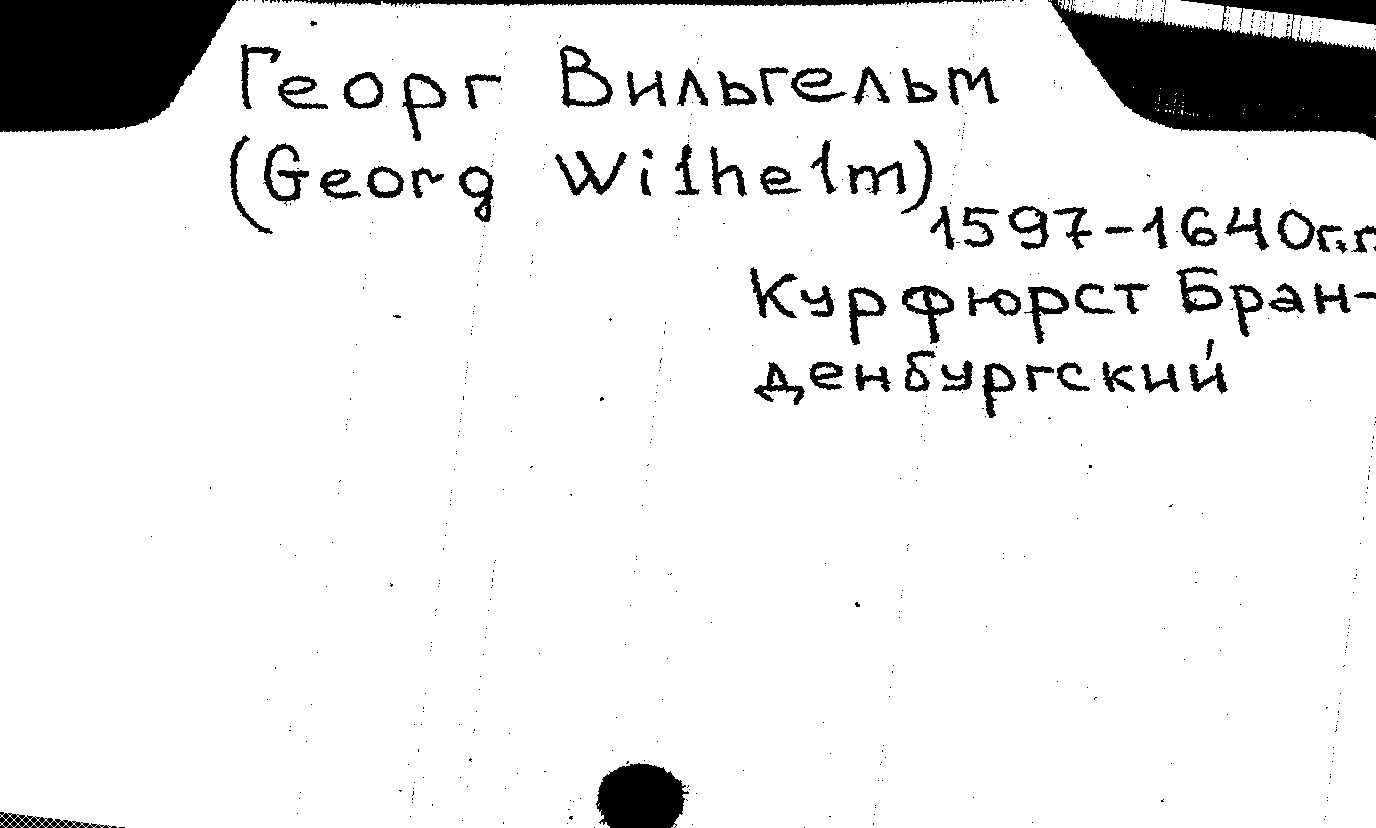 Георг Вильгельм
(Georg Wilhelm)
1597-1640г.г.
Курфюрст Бран-
денбургский